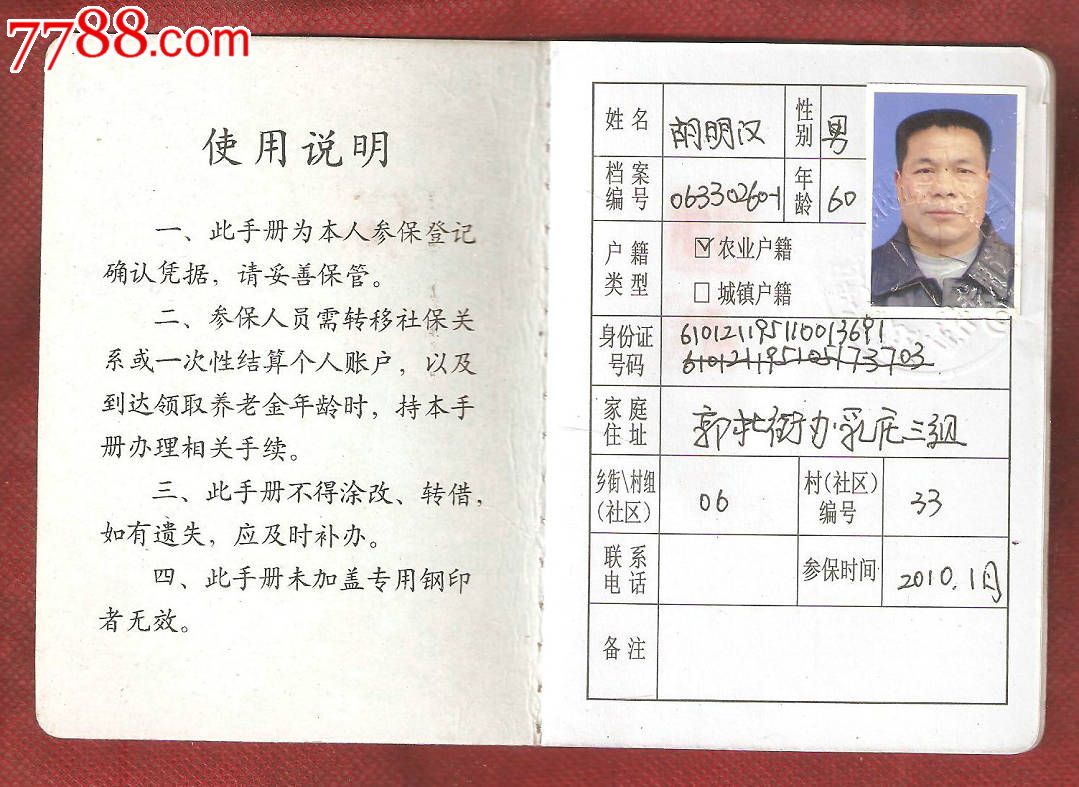 7788.com
使用说明
一、此手册为本人参保登记
确认凭据，请妥善保管。
二、参保人员需转移社保关
系或一次性结算个人账户，以及
到达领取养老金年龄时，持本手
册办理相关手续。
三、此手册不得涂改、转借，
如有遗失，应及时补办。
四、此手册未加盖专用钢印
者无效。
姓名 胡明汉 性别 男
档案编号 06330260-1 年龄 60
户籍类型 ☑农业户籍
□城镇户籍
身份证号码 610121195110013691
610121195105173703
家庭住址 郭杜街办·乳庄三组
乡街\村组(社区) 06 村(社区)编号 33
联系电话 参保时间 2010.1月
备注